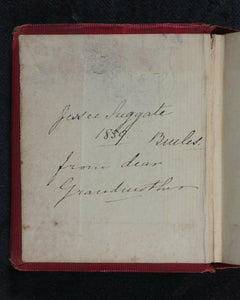 Jessie Suggate
1859 Beccles.
from dear
Grandmother